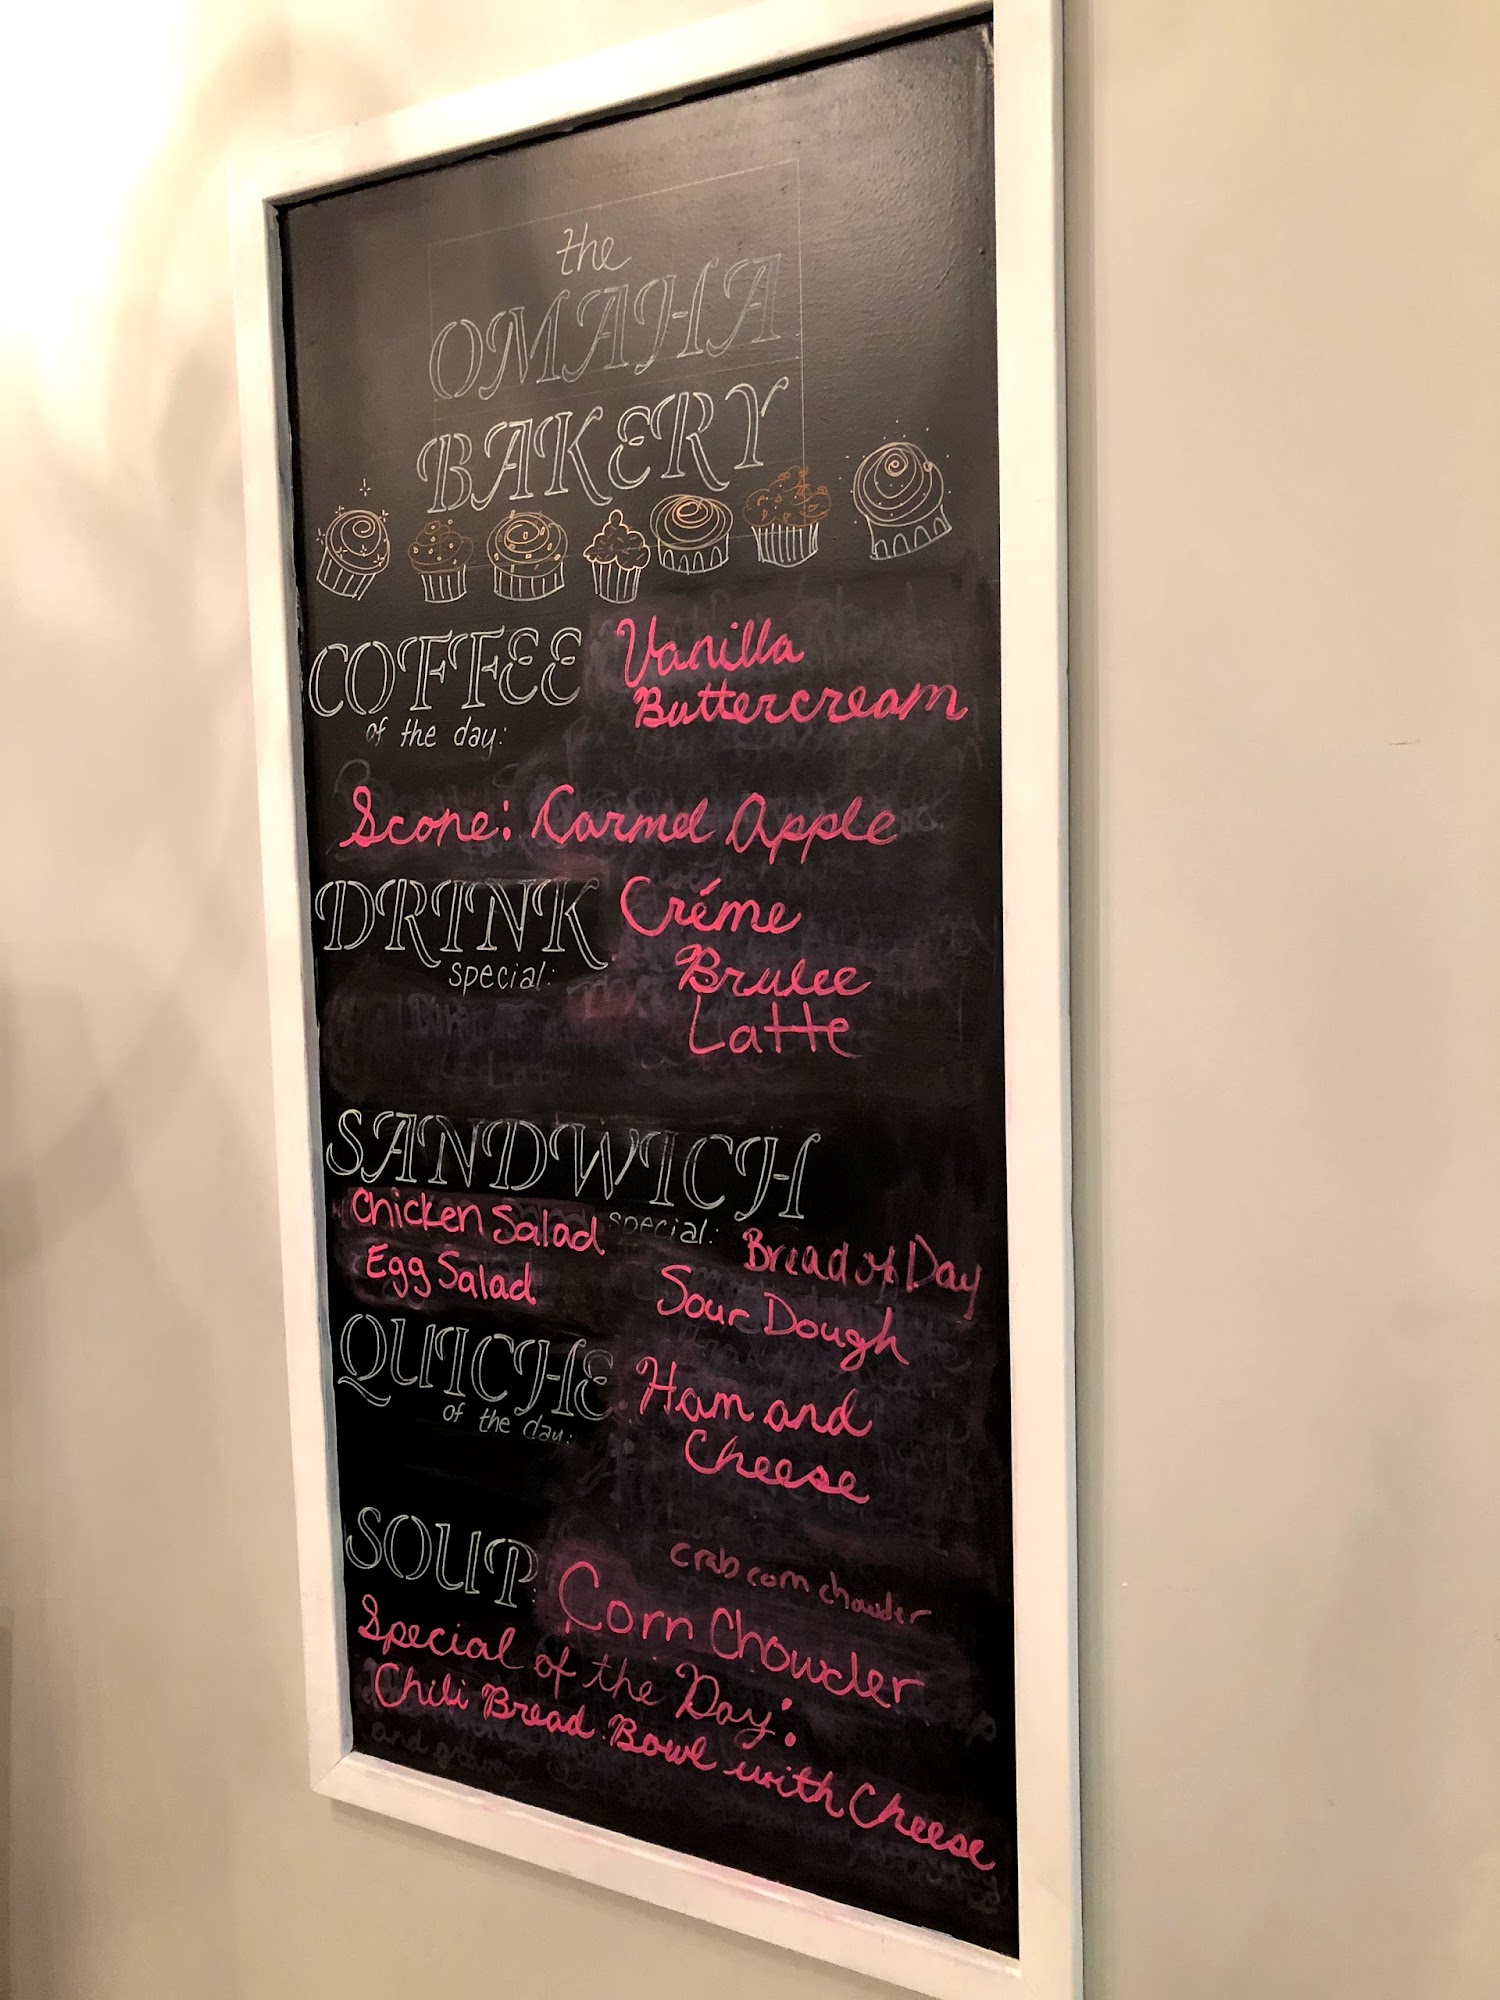 the
OMAHA
BAKERY
COFFEE
of the day:
Vanilla
Buttercream
Scone: Carmel Apple
DRINK
special:
Créme
Brulee
Latte
SANDWICH
special:
Chicken Salad
Egg Salad
Bread of Day
Sour Dough
QUICHE
of the day:
Ham and
Cheese
SOUP:
crab corn chowder
Corn Chowder
Special of the Day:
Chili Bread Bowl with Cheese